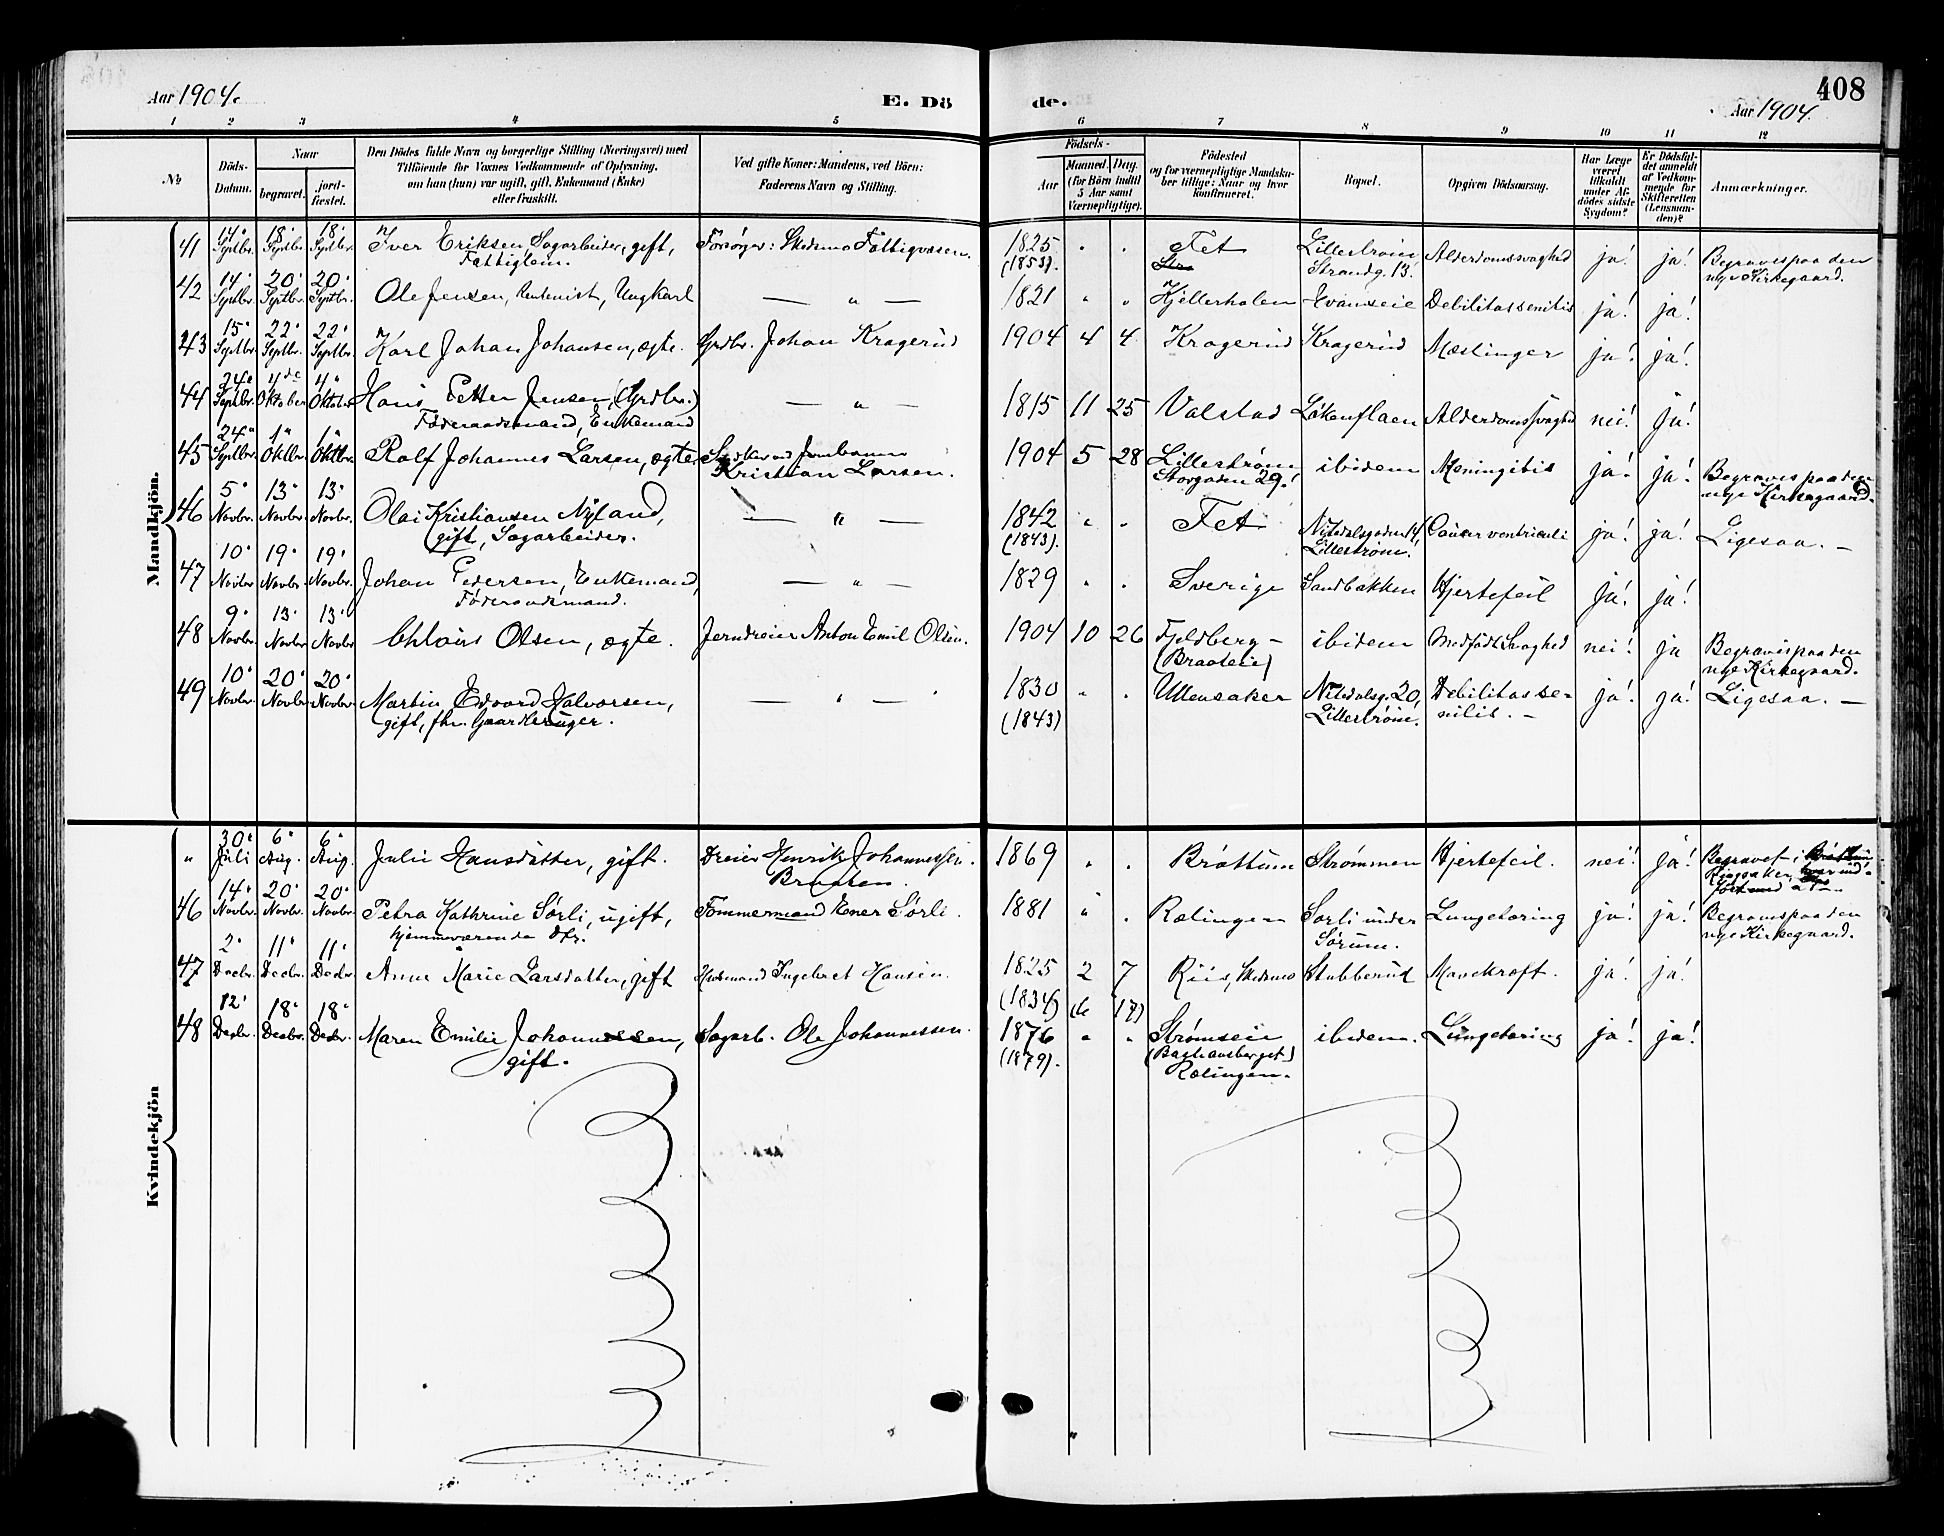 408
Aar 1904.
E. Dö
de.
Aar 1904.
1 2 3 4 5 6 7 8 9 10 11 12
No
Döds-
Datum.
Naar
begravet.
jord-
fæstet.
Den Dödes fulde Navn og borgerlige Stilling (Næringsvei) med
Tilföiende for Voxnes Vedkommende af Oplysning,
om han (hun) var ugift, gift, Enkemand (Enke)
eller fraskilt.
Ved gifte Koner: Mandens, ved Börn:
Faderens Navn og Stilling.
Födsels-
Aar
Maaned. Dag.
(for Börn indtil
5 Aar samt
Værnepligtige).
Födested
og for værnepligtige Mandska-
ber tillige: Naar og hvor
konfirmeret.
Bopæl.
Opgiven Dödsaarsag.
Har Læge
været
tilkaldt
under Af-
dödes sidste
Sygdom?
Er Dödsfal-
det anmeldt
af Vedkom-
mende for
Skifteretten
(Lensman-
den)?
Anmærkninger.
Mandkjön.
41 14. Septbr. 18. Septbr. 18. Septbr. Iver Eriksen Sagarbeider, gift, Forsörger: Skedsmo Fattigvæsen. 1825 Fet Lillestrøm, Alderdomssvaghed ja! ja! Begraves paa den
Fattiglem. (1853). Strandg. 13. nye Kirkegaard.
42 14. Septbr. 20. Septbr. 20. Septbr. Ole Jensen, Ungkarl — " — 1821 " " Debilitas senilis ja! ja!
43 15. Septbr. 22. Septbr. 22. Septbr. Karl Johan Johansen, ægte. Grdbr. Johan Kragerud 1904 4 4 Kragerud Kragerud Mæslinger ja! ja!
44 24. Septbr. 4de Oktober 4. Oktober Hans Petter Jensen, (Grdbr.) — " — 1815 11 25 Valstad Løkenflaen Alderdomssvaghed nei! ja!
Föderaadsmand, Enkemand
45 24. Septbr. 1. Oktbr. 1. Oktbr. Rolf Johannes Larsen, ægte 1904 5 28 Lillestrøm ibidem Meningitis ja! ja! Begraves paa den
Kristian Larsen. Storgaden 29. nye Kirkegaard.
46 5. Novbr. 13. Novbr. 13. Novbr. Olai Kristiansen Nyland, — " — 1842 " . Fet Nitedalsgaden 14, Cancer ventriculi ja! ja! Ligesaa. —
gift, Sagarbeider. (1843). Lillestrøm.
47 10. Novbr. 19. Novbr. 19. Novbr. Johan Pedersen, Enkemand, — " — 1829 " . Sverige Sandbakken Hjertefeil ja! ja!
Föderaadsmand.
48 9. Novbr. 13. Novbr. 13. Novbr. Olsen, ægte. Jerndreier Anton Emil Olsen. 1904 10 26 Fjeldberg - ibidem Medfødt Svaghed nei! ja Begraves paa den
(Braateie) nye Kirkegaard.
49 10. Novbr. 20. Novbr. 20. Novbr. Martin Edvard Halvorsen, — " — 1830 " . Ullensaker Nitedalsg. 20, Debilitas se- ja! ja! Ligesaa. —
gift, fhv. Gaardbruger. (1843) Lillestrøm. nilis. —
Kvindekjön
" 30. Juli 6. Aug. 6. Aug. Julie Hansdatter, gift. Dreier Henrik Johannessen. 1869 " . Brøttum Strømmen Hjertefeil. nei! ja! Begravet i
Braaten. Ringsaker,
46 14. Novbr. 20. Novbr. 20. Novbr. Petra Kathrine Sørli, ugift, Tømmermand Ener Sørli. 1881 " . Rælingen Sørli under Lungetæring ja! ja! Begraves paa den
hjemmeværende Dtr. Sørum. nye Kirkegaard.
47 2. Decbr. 11. Decbr. 11. Decbr. Anne Marie Larsdatter, gift Husmand Ingebret Hansen. 1825 2 7 Riis, Skedsmo Stubberud Mavekræft. ja! ja!
(1834) (6 17)
48 12. Decbr. 18. Decbr. 18. Decbr. Maren Emilie Johannessen, Sagarb. Ole Johannessen. 1876 " " Strømseie ibidem. Lungetæring ja! ja!
gift. (1879). Rælingen.